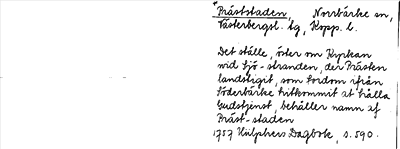 Präststaden, Norrbärke sn,
Västerbergsl. tg, Kopp. l.
Det ställe, öster om Kyrkan
wid Sjö-stranden, der Prästen
landstigit, som fordom ifrån
Söderbärke hitkommit at hålla
Gudstjenst, behåller namn af
Präst-staden
1757 Hülphers Dagbok, s. 590.